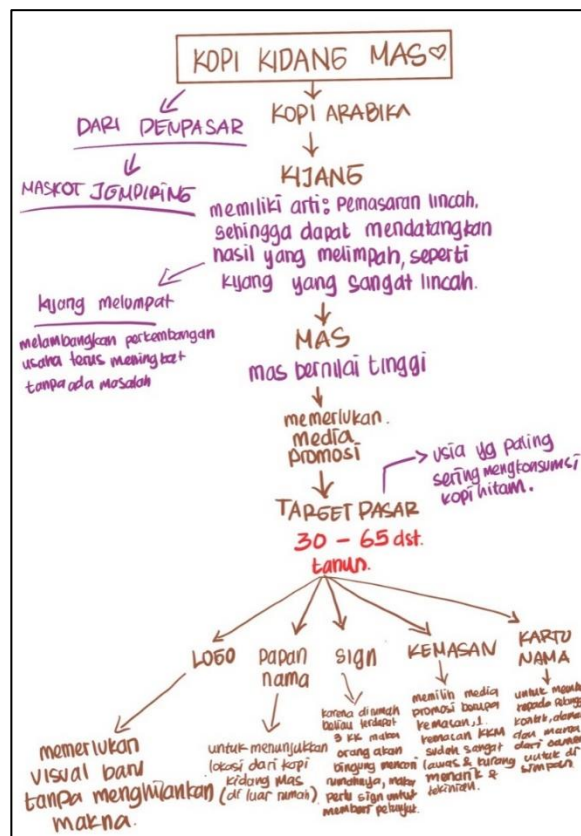 KOPI KIDANG MAS♡
DARI DENPASAR
MASKOT JEMPIRING
KOPI ARABIKA
KIJANG
memiliki arti: Pemasaran lincah,
sehingga dapat mendatangkan
hasil yang melimpah, seperti
kijang yang sangat lincah.
kijang melompat
melambangkan perkembangan
usaha terus meningkat
tanpa ada masalah
MAS
mas bernilai tinggi
memerlukan
media
promosi
TARGET PASAR
30 - 65 dst.
tahun.
usia yg paling
sering mengkonsumsi
kopi hitam.
LOGO
memerlukan
visual baru
tanpa menghilankan
makna.
papan
nama
untuk menunjukkan
lokasi dari kopi
kidang mas
(di luar rumah)
sign
karena dirumah
beliau terdapat
3 KK maka
orang akan
bingung mencari
rumahnya, maka
perlu sign untuk
memberi petunjuk.
KEMASAN
memilih media
promosi berupa
kemasan,
kemasan KKM
sudah sangat
lawas & kurang
menarik &
kekinian.
KARTU
NAMA
untuk
kepada
kontak,
dan mana
dari
untuk di
simpan.